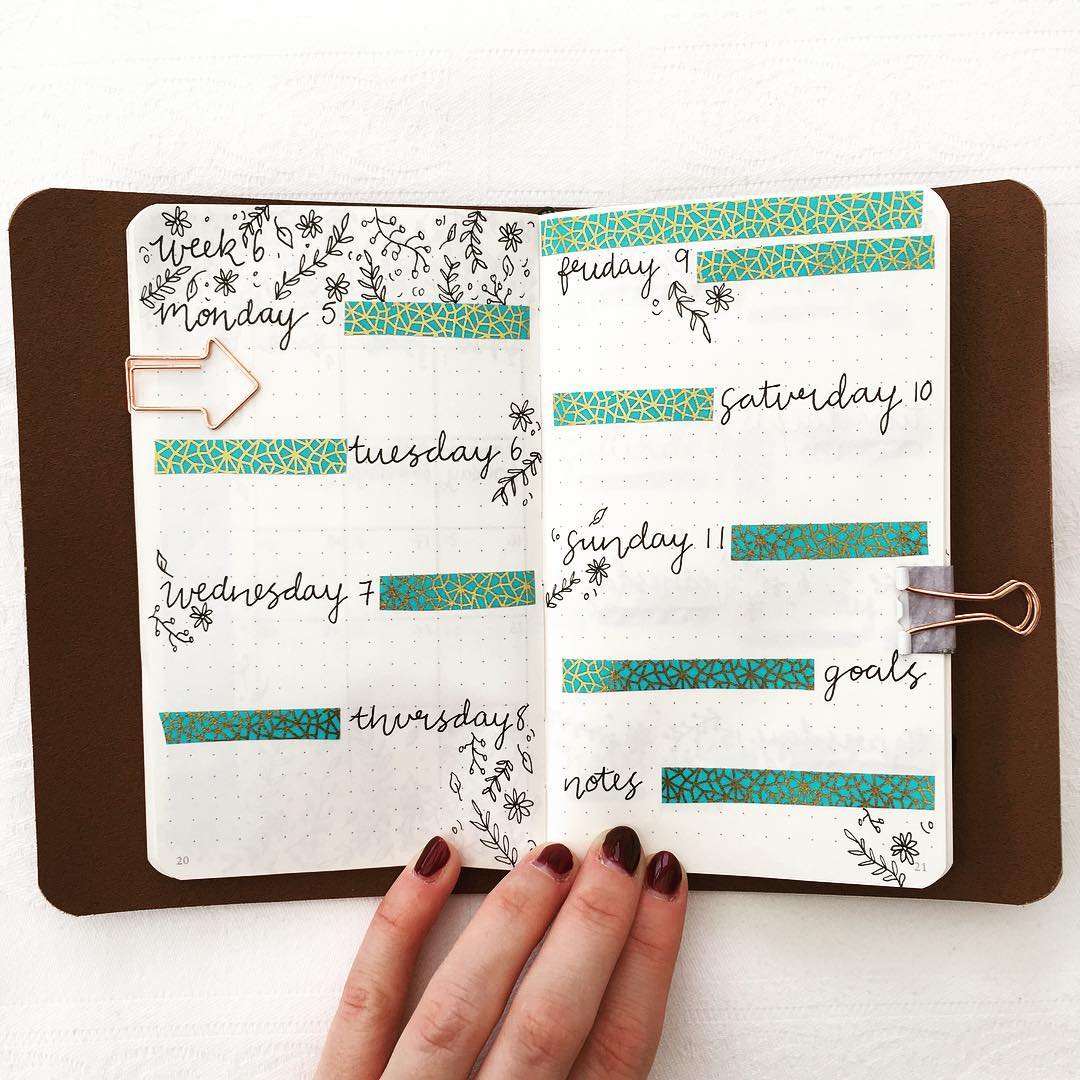 week 6
monday 5
tuesday 6
wednesday 7
thursday 8
20
friday 9
saturday 10
sunday 11
goals
notes
21